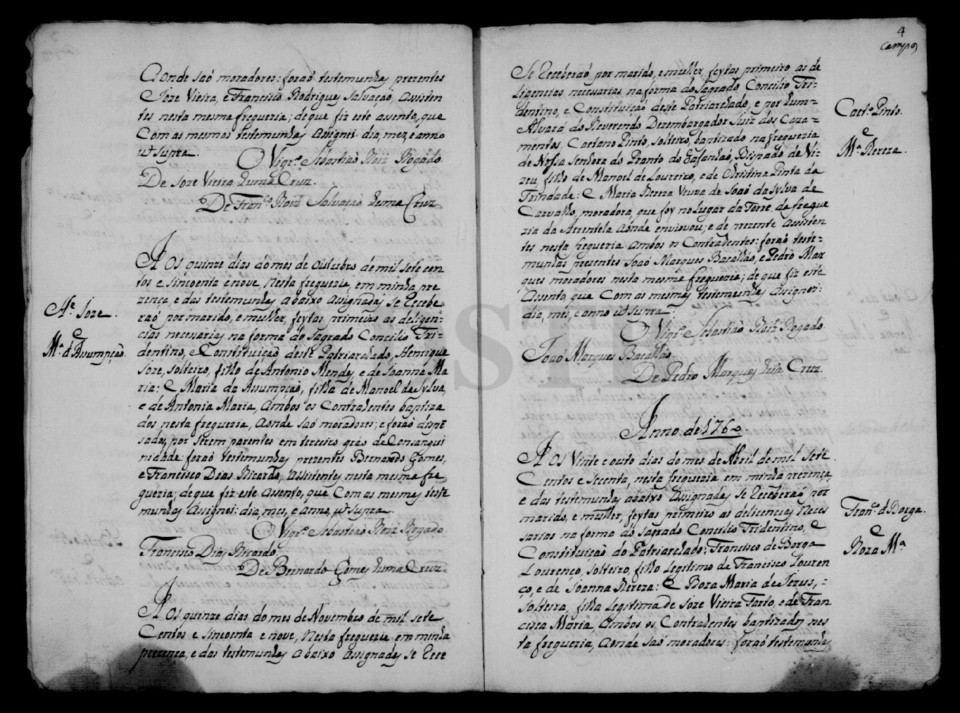 Aonde saó moradores: foraó testemunhas prezentes
Joze Vieira, e Francisco Rodrigues Salvaçaó, assisten
tes nesta mesma freguezia; de que fiz este assento, que
Com as mesmas testemunhas assignei. dia, mez, e anno
ut supra.
O Vigrº. Sebastiaó Roiz Rogado
De Joze Vieira huma Cruz.
De Franº. Roiz Salvaçaó huma Cruz
Aºˢ. Joze.
e
Mª. d'Assumpçaó.
Aos quinze dias do mes de Outubro de mil sete cen
tos e sincoenta e nove, nesta freguezia, em minha pre
zença, e das testemunhas abaixo assignadas se Recebe
raó por marido, e mulher, feytas primeiro as deligen
cias necessarias na forma do Sagrado Concilio Tri
dentino, e Constituiçaó deste Patriarcado, Henrique
Joze, Solteiro, filho de Antonio Mendes, e de Joanna Ma
ria: E Maria da Assumpçaó, filha de Manoel da Sylva,
e de Antonia Maria, ambos os Contrahentes baptiza
dos nesta freguezia, Aonde saó moradores; e foraó dispen
sados, por serem parentes em terceiro gráo de Consangui
nidade foraó testemunhas prezentes Bernardo Gomes,
e Francisco Dias Ricardo, assistentes nesta mesma fre
guezia; de que fiz este assento, que Com as mesmas teste
munhas assignei: dia, mes, e anno, ut supra.
O Vigrº. Sebastiaó Roiz Rogado
Francisco Dias Ricardo
De Bernardo Gomes huma Cruz.
Aos quinze dias do mes de Novembro de mil sete
Centos e sincoenta e nove, nesta freguezia, em minha
prezença, e das testemunhas abaixo assignadas se Rece
4
Campos
Se Receberaó por marido, e mulher, feytas primeiro as de
ligencias necessarias na forma do Sagrado Concilio Tri
dentino, e Constituiçaó deste Patriarcado, e por hum
Alvará do Reverendo Dezembargador Juiz dos Caza
mentos, Caetano Pinto, Solteiro, bautizado na freguezia
de Nossa Senhora do Pranto de Bispado de Vi
zeu, filho de Manoel de Loureiro, e de Christina Pinta da
Trindade: E Maria Pereza Veuva de Joaó da Sylva de
Carvalho, moradora, que foy no lugar da Torre, da fregue
zia da Arrentela aonde enviuvou; e de prezente assisten
tes nesta freguezia ambos os Contrahentes: foraó teste
munhas prezentes Joaó Marques Bacalhao, e Pedro Mar
ques moradores nesta mesma freguezia; de que fiz este
assento, que Com as mesmas testemunhas assignei:
dia, mes, e anno ut supra.
O Vigrº. Sebastiaó Roiz Rogado
Joaó Marques Bacalhao
De Pedro Marques huã Cruz.
Caetº. Pinto.
e
Mª. Pereza.
Anno de 1760
Aos Vinte e outo dias do mes de Abril de mil sete
Centos e secenta, nesta freguezia em minha prezença,
e das testemunhas abaixo assignadas se Receberaó por
marido, e mulher, feytas primeiro as delicencias neces
sarias na forma do Sagrado Concilio Tridentino, e
Constituiçaó do Patriarcado: Francisco de Borga
Lourenço, Solteiro, filho legitimo de Francisco Louren
ço, e de Joanna Pereza: E Roza Maria de Jezus,
Solteira, filha legitima de Joze Vieira Farto, e de Fran
cisca Maria, ambos os Contrahentes bautizados nes
ta freguezia, Aonde saó moradores: foraó testemunhas
Franº. d'Borga.
e
Roza Mª.